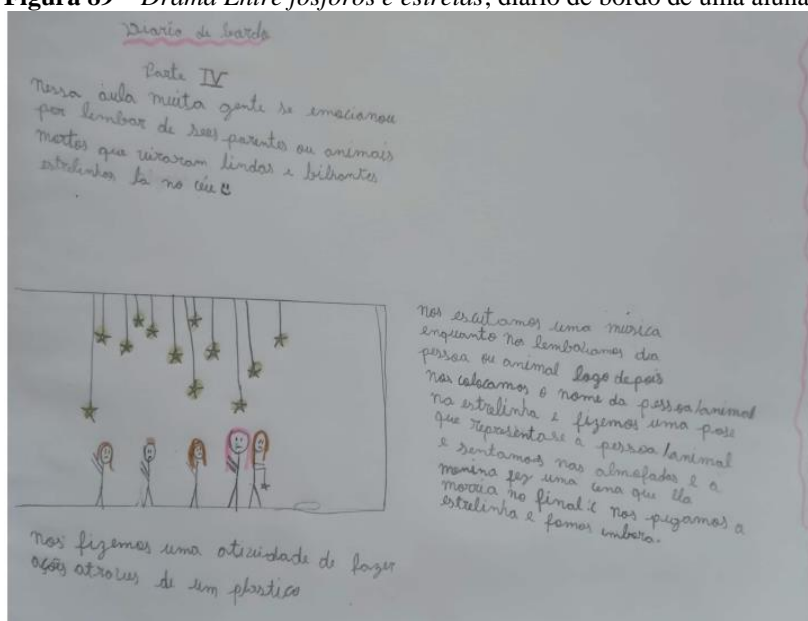 Figura 89 – Drama Entre fósforos e estrelas, diário de bordo de uma aluna
Diario de bardo
Parte IV
nessa aula muita gente se emocionou
por lembar de sees parentes ou animais
mortos que viraram lindas e bilhantes
estrelinhas la no céu
nos escutamos uma música
enquanto nos lembavamos da
pessoa ou animal logo depois
nos colocamos o nome da pessoa/animal
na estrelinha e fizemos uma pose
que representase a pessoa/animal
e sentamos nas almofadas e a
menina fez uma cena que ela
morria no final e nos pegamos a
estrelinha e fomos embora.
nos fizemos uma atividade de fazer
ações atraves de um plastico